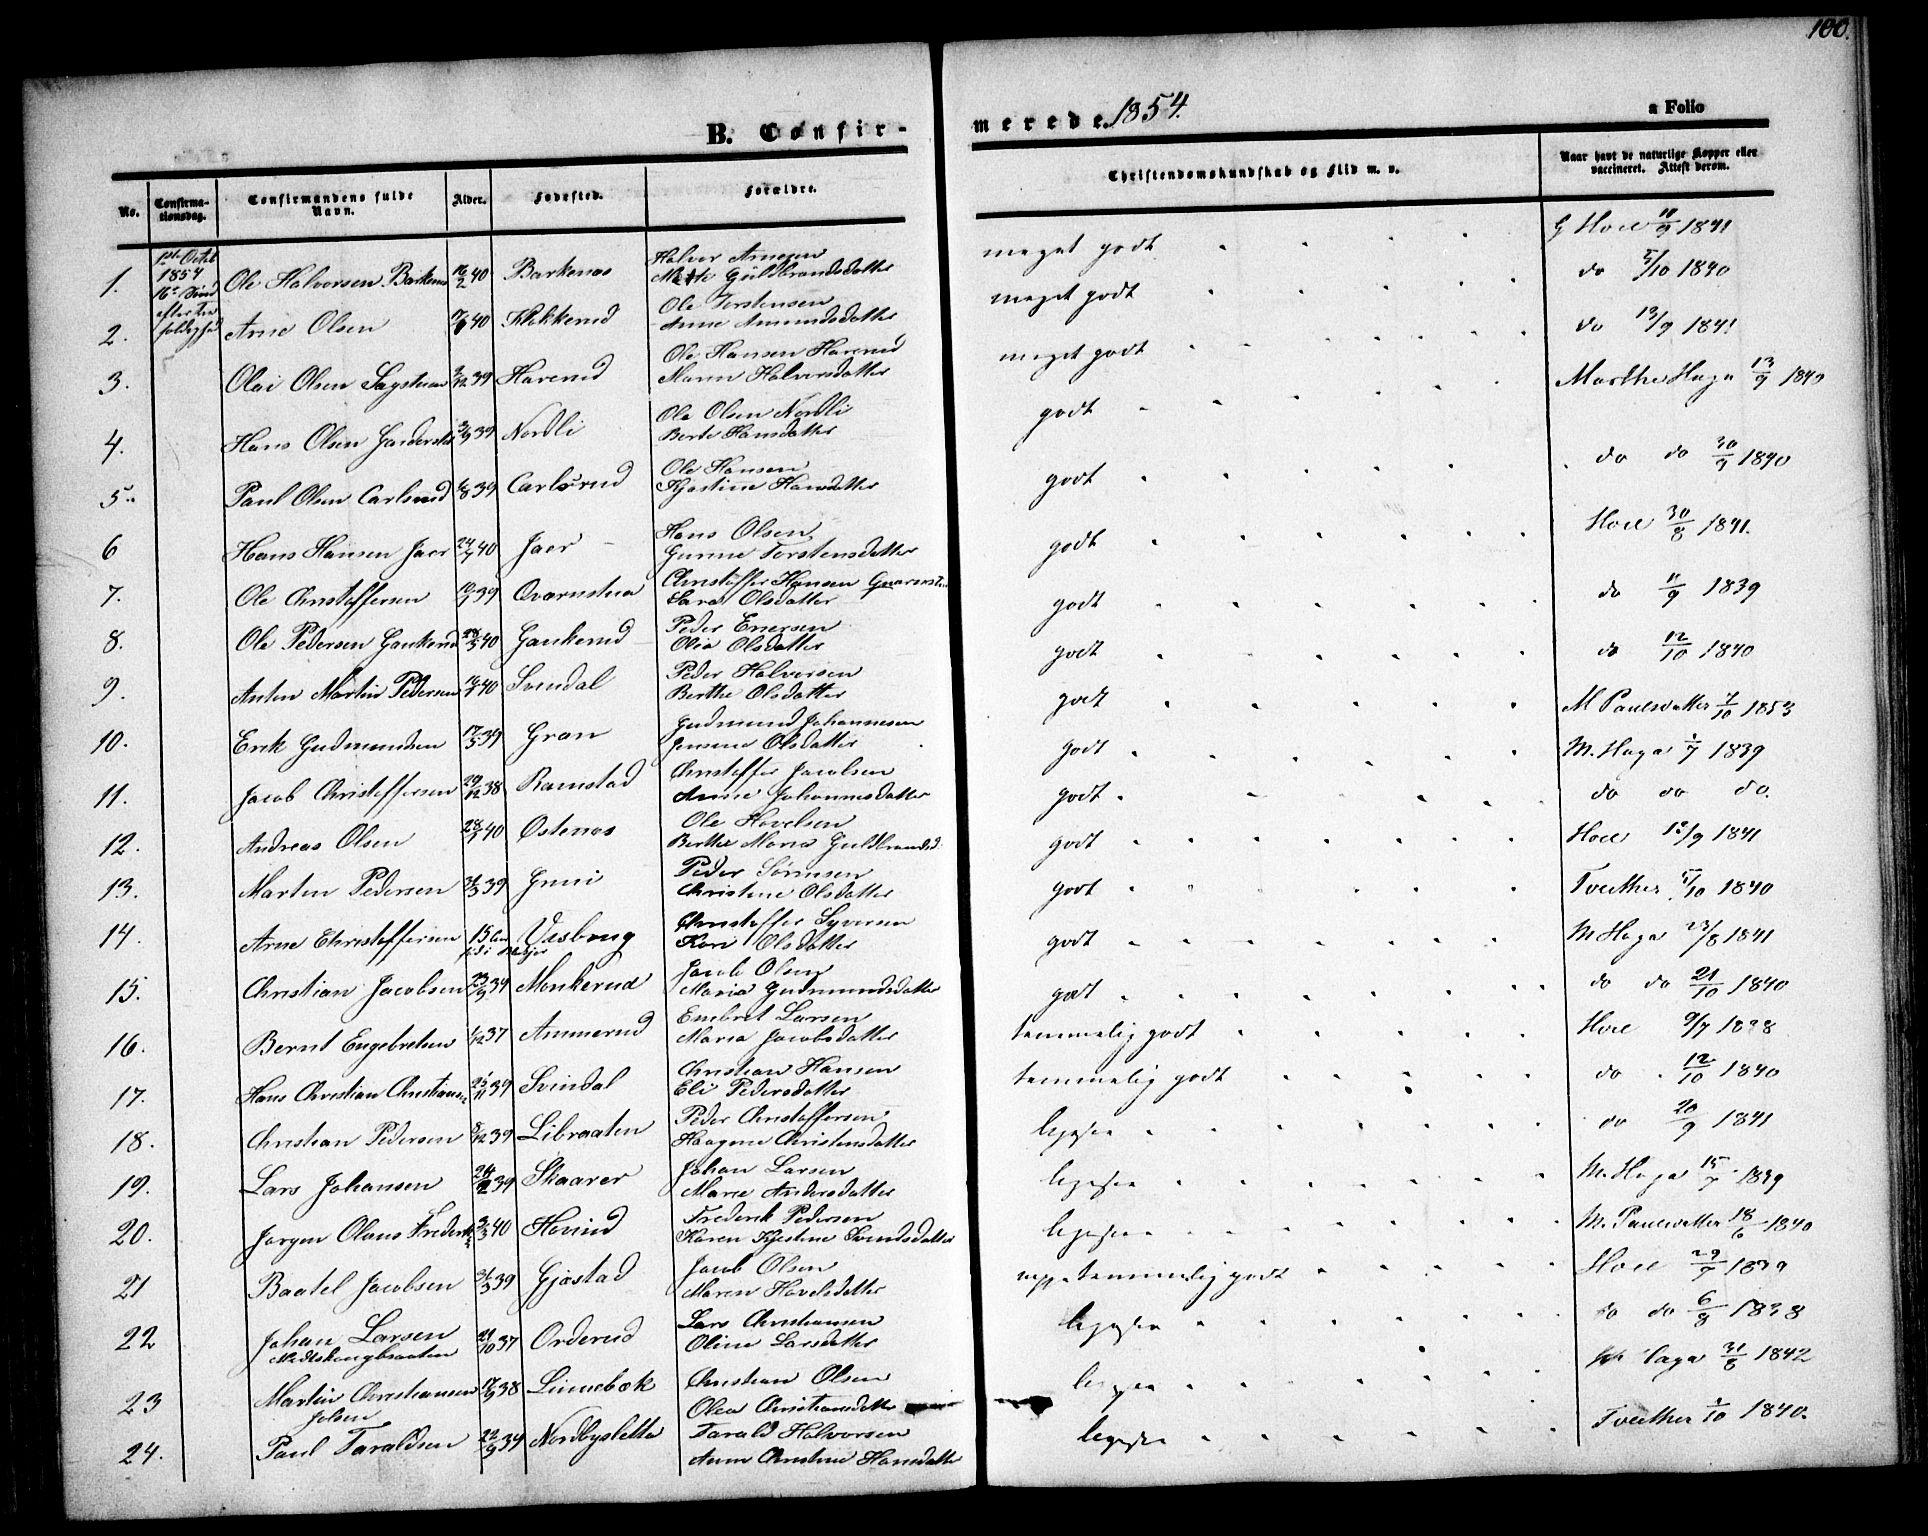 100.
B. Confir-
merede 1854.
a Folio
No.
Confirma-
tionsdag.
Confirmandens fulde
Navn.
Alder.
Fødested.
Forældre.
Christendomskundskab og Flid m. v.
Naar havt de naturlige Kopper eller
vaccineret. Attest derom.
1ste Octob
1854
16de Sønd
efter Tre
foldighed
Halvor Arnesen
1. Ole Halvorsen Barkenæs 16/2 40 Barkenæs Mette Guldbrandsdatter meget godt G Hoel 10/9 1841
Ole Torstensen
2. Arne Olsen 40 Klokkerud Anne Amundsdatter meget godt do 5/10 1840
Ole Hansen Harerud
3. Olai Olsen Sagstuen 39 Harerud Maren Halvorsdatter meget godt do 13/9 1841
Ole Olsen Nordli
4. Hans Olsen 39 Nordli Berte Hansdatter godt Marthe Haga 13/9 1840
Ole Hansen
5. Paul Olsen Carlsrud 39 Carlsrud Kjestine Hansdatter godt do do 30/9 1840
Hans Olsen
6 Hans Hansen Jaer 24/7 40 Jaer Gunne Torstensdatter godt Hoel 30/8 1841.
Christoffer Hansen
7. Ole Christoffersen 39 Qvarnstua Sara Olsdatter godt do 11/9 1839
Peder Enersen
8. Ole Pedersen Gaukerud 40 Gaukerud Olia Olsdatter godt do 12/10 1840
Peder Halvorsen
9. Anton Martin Pedersen 40 Svindal Berthe Olsdatter godt M Paulsdatter 7/10 1853
Gudmund Johannesen
10. Erik Gudmundsen 17/5 39 Gran Olsdatter godt M. Haga 1839
Christoffer Jacobsen
11. Jacob Christoffersen 29/12 38 Ramstad Anne Johannesdatter godt do do do.
Ole Hovelsen
12. Andreas Olsen 28/1 40 Østenas Berthe Maria Guldbrandsd: godt Hoel 12/9 1841
Peder Sørensen
13. Martin Pedersen 39 Christine Olsdatter godt Tveither 5/10 1840
Christoffer Syversen
14. Arne Christoffersen 15 Vasbong Kari Olsdatter godt M Haga 23/8 1841
Jacob Olsen
15. Christian Jacobsen 39 Monkerud Maria Gudmundsdatter godt do do 21/10 1840
Embret Larsen
16. Bernt Engebretsen 1/12 37 Ammerud Maria Jacobsdatter temmelig godt Hoel 9/7 1838
Christian Hansen
17. Hans Christian Christiansen 25/11 39 Svindal Eli Pedersdatter temmelig godt do 12/10 1840
Peder Christoffersen
18. Christian Pedersen 8/12 39 Libraaten Haagene Christensdatter ligesaa do 20/9 1841
Johan Larsen
19. Lars Johansen 39 Skaarer Marie Andersdatter ligesaa M. Haga 15/7 1839
Frederik Pedersen
20. Jørgen Olaus Frederik 3/3 40 Hovind Karen Kjestine Svendsdatter ligesaa M. Paulsdatter 18/6 1840
Jacob Olsen
21 Baatel Jacobsen 39 Gjøstad Maren Hovelsdatter temmelig godt Hoel 29/7 1839
Lars Christiansen
22 Johan Larsen 21/10 37 Orderud Oline Larsdatter ligesaa do do 6/8 1838
Christian Olsen
23 Martin Christiansen 17/9 38 Linnebæk Olea Christiansdatter ligesaa Haga 31/8 1842
Tarald Halvorsen
24. Paul Taraldsen 22/9 39 Nordbysletta Anne Christine Hansdatter ligesaa Tveither 1/10 1840.